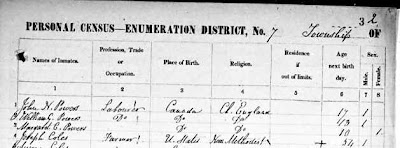 32
PERSONAL CENSUS—ENUMERATION DISTRICT, No. 7 Township OF
Names of Inmates. Profession, Trade or Occupation. Place of Birth. Religion. Residence if out of limits. Age next birth day. Sex. Male. Female.
1 2 3 4 5 6 7 8
John N. Powers Labourer Canada Ch. England 17 1
William C. Powers Do Do 13 1
Margaret E. Powers Do 10 1
Joseph Coles Farmer U. States Wes. Methodist 54 1